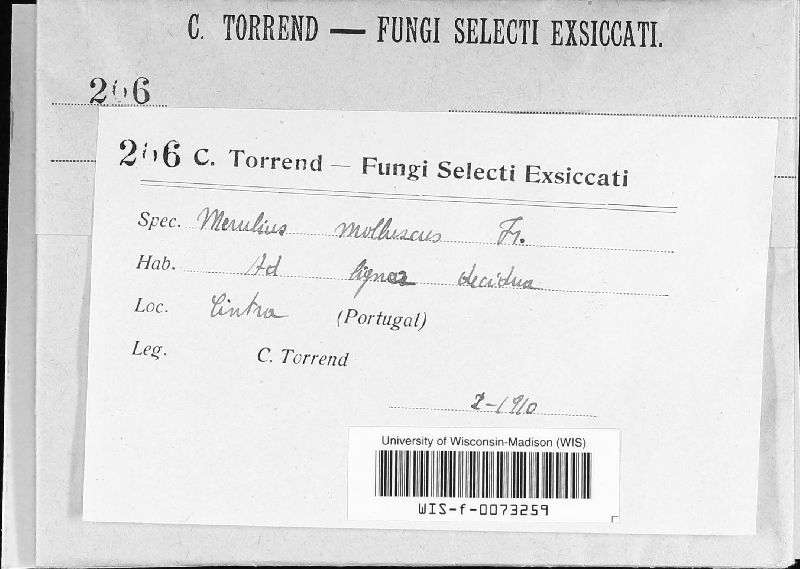 C. TORREND — FUNGI SELECTI EXSICCATI.
206
206 C. Torrend — Fungi Selecti Exsiccati
Spec. Merulius molluscus Fr.
Hab. Ad ligna decidua
Loc. Cintra (Portugal)
Leg. C. Torrend
2-1910
University of Wisconsin-Madison (WIS)
WIS-f-0073259